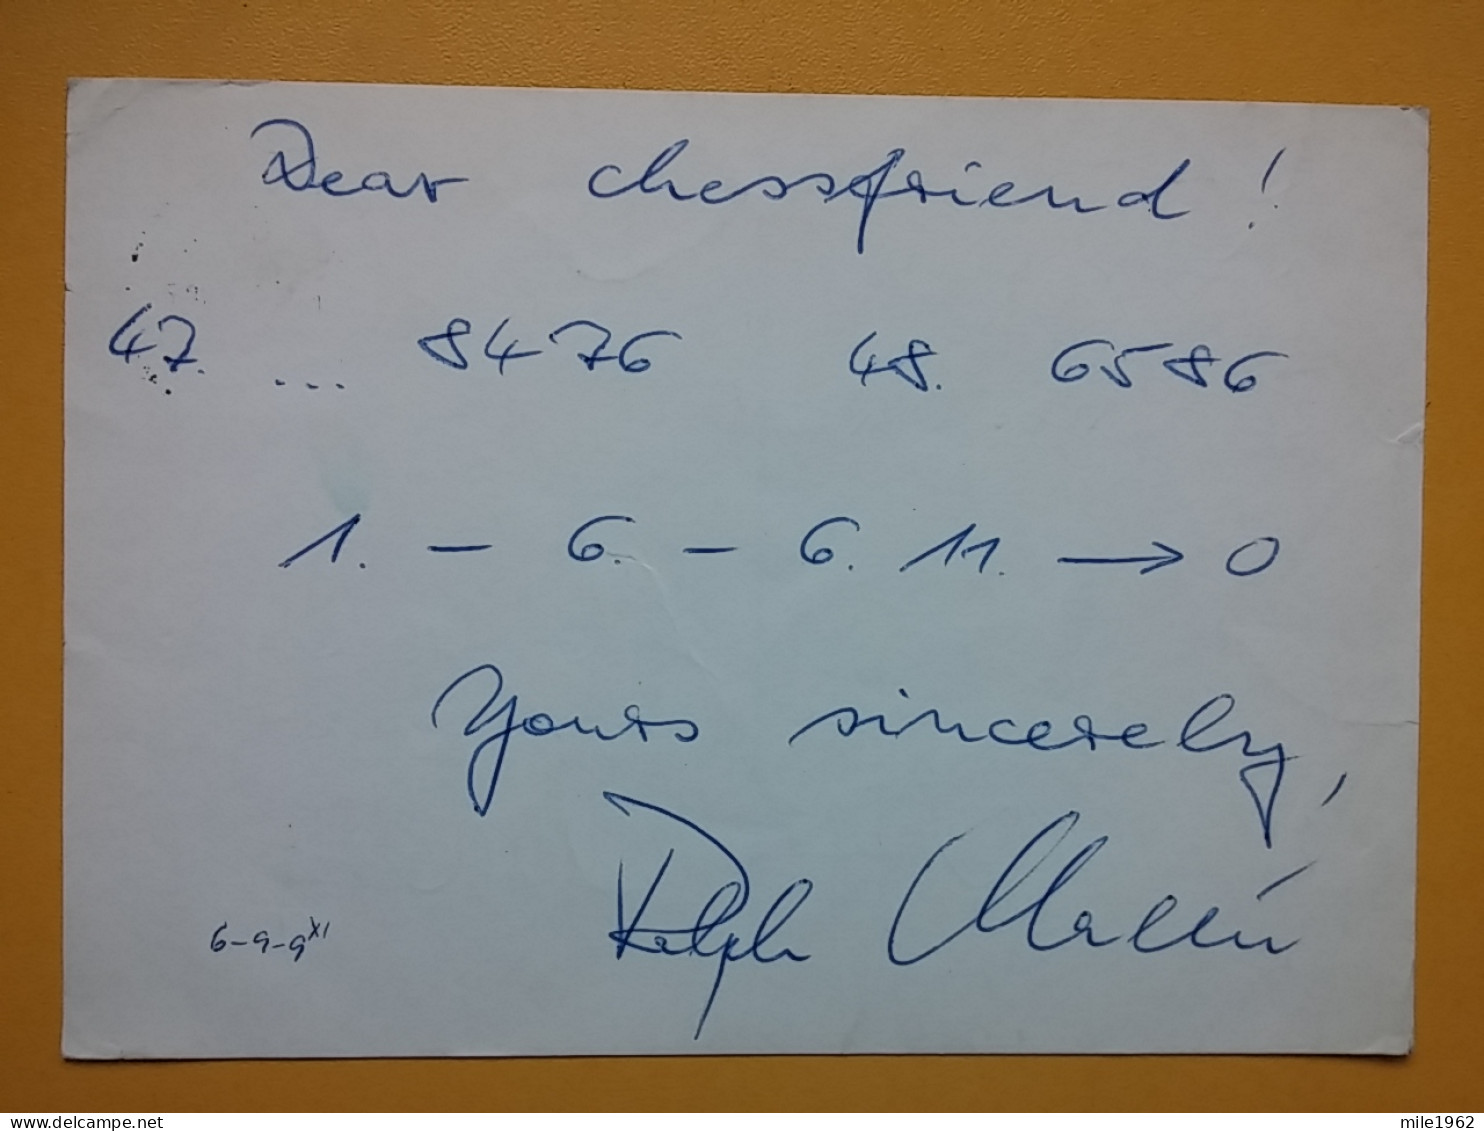 Dear chessfriend!
47. ... 8476 48. 6586
1. – 6. – 6. 11. → 0
Yours sincerely,
Ralph Mallée
6–9–9 XI
mile1962